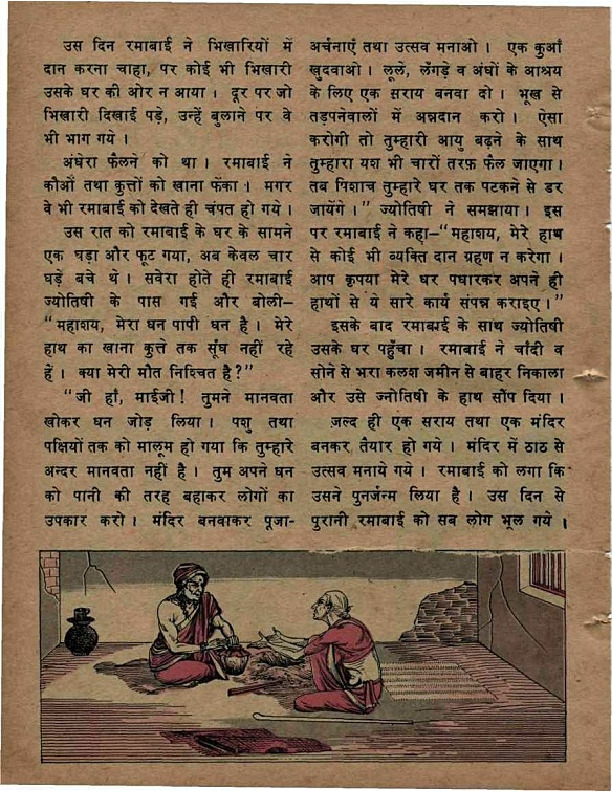 उस दिन रमाबाई ने भिखारियों में
दान करना चाहा, पर कोई भी भिखारी
उसके घर की ओर न आया । दूर पर जो
भिखारी दिखाई पड़े, उन्हें बुलाने पर वे
भी भाग गये ।
अंधेरा फैलने को था । रमाबाई ने
कौओं तथा कुत्तों को खाना फेंका । मगर
वे भी रमाबाई को देखते ही चंपत हो गये ।
उस रात को रमाबाई के घर के सामने
एक घड़ा और फूट गया, अब केवल चार
घड़ें बचे थे । सवेरा होते ही रमाबाई
ज्योतिषी के पास गई और बोली–
"महाशय, मेरा धन पापी धन है । मेरे
हाथ का खाना कुत्ते तक सूँघ नहीं रहे
हैं । क्या मेरी मौत निश्चित है?"
"जी हाँ, माईजी! तुमने मानवता
खोकर धन जोड़ लिया । पशु तथा
पक्षियों तक को मालूम हो गया कि तुम्हारे
अन्दर मानवता नहीं है । तुम अपने धन
को पानी की तरह बहाकर लोगों का
उपकार करो । मंदिर बनवाकर पूजा-
अर्चनाएँ तथा उत्सव मनाओ । एक कुआँ
खुदवाओ । लूलें, लँगड़े व अंधों के आश्रय
के लिए एक सराय बनवा दो । भूख से
तड़पनेवालों में अन्नदान करो । ऐसा
करोगी तो तुम्हारी आयु बढ़ने के साथ
तुम्हारा यश भी चारों तरफ़ फैल जाएगा ।
तब पिशाच तुम्हारे घर तक पटकने से डर
जायेंगे ।" ज्योतिषी ने समझाया । इस
पर रमाबाई ने कहा–"महाशय, मेरे हाथ
से कोई भी व्यक्ति दान ग्रहण न करेगा ।
आप कृपया मेरे घर पधारकर अपने ही
हाथों से ये सारे कार्य संपन्न कराइए ।"
इसके बाद रमाबाई के साथ ज्योतिषी
उसके घर पहुँचा । रमाबाई ने चाँदी व
सोने से भरा कलश जमीन से बाहर निकाला
और उसे ज्नोतिषी के हाथ सौंप दिया ।
जल्द ही एक सराय तथा एक मंदिर
बनकर तैयार हो गये । मंदिर में ठाठ से
उत्सव मनाये गये । रमाबाई को लगा कि
उसने पुनर्जन्म लिया है । उस दिन से
पुरानी रमाबाई को सब लोग भूल गये ।